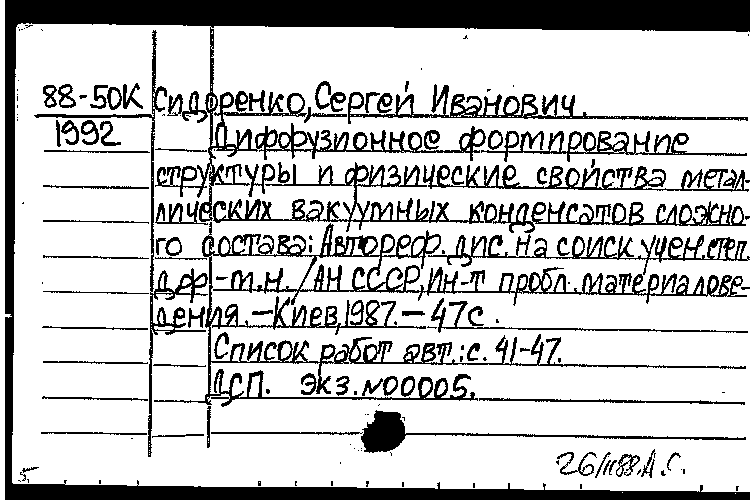 88-50К Сидоренко, Сергей Иванович.
1992 Диффузионное формирование
структуры и физические свойства метал-
лических вакуумных конденсатов сложно-
го состава: Автореф. дис. на соиск. учен. степ.
д.ф.-м.н. / АН СССР, Ин-т пробл. материалове-
дения. – Киев, 1987. – 47 с.
Список работ авт.: с. 41-47.
ДСП. Экз. N00005.
26/II88. А.С.
5.